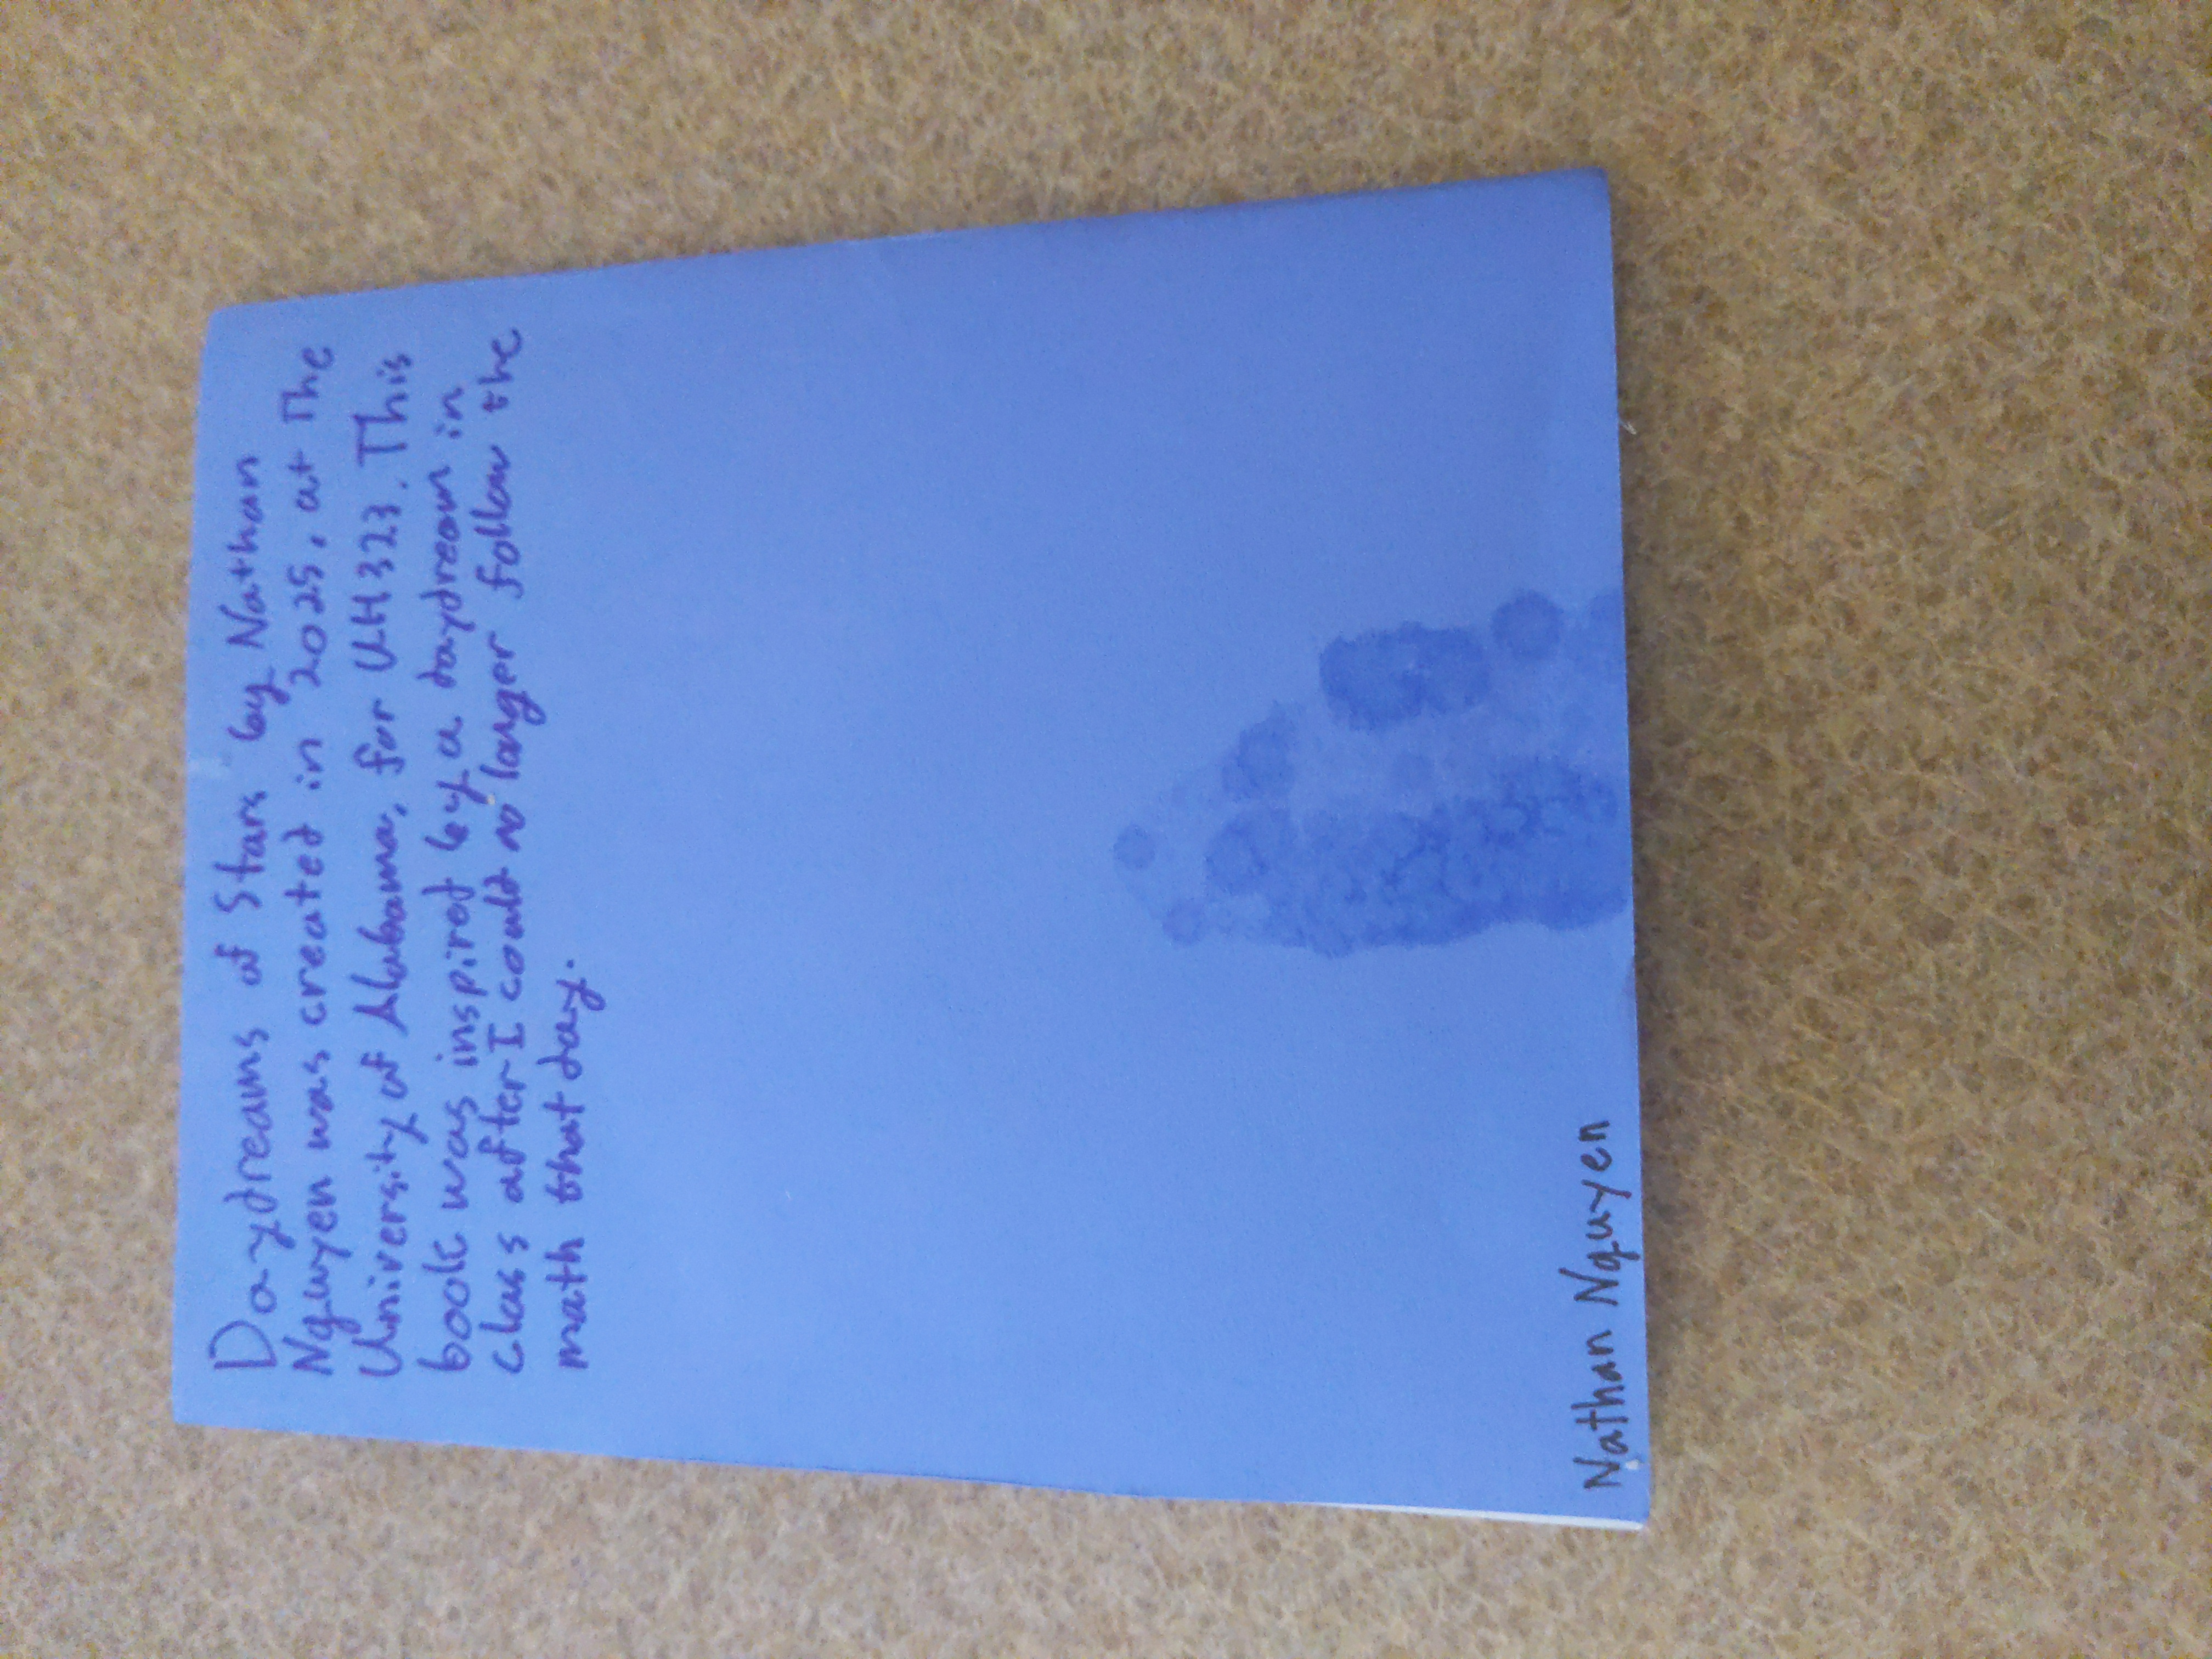 Daydreams of Stars by Nathan
Nguyen was created in 2025, at The
University of Alabama, for UH323. This
book was inspired by a daydream in
class after I could no longer follow the
math that day.
Nathan Nguyen